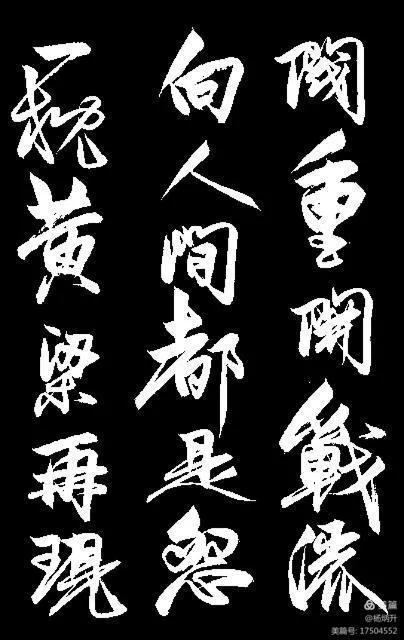 閥重開戰灑
向人間都是怨
一枕黄粱再現
美篇
@杨炳升
美篇号: 17504552